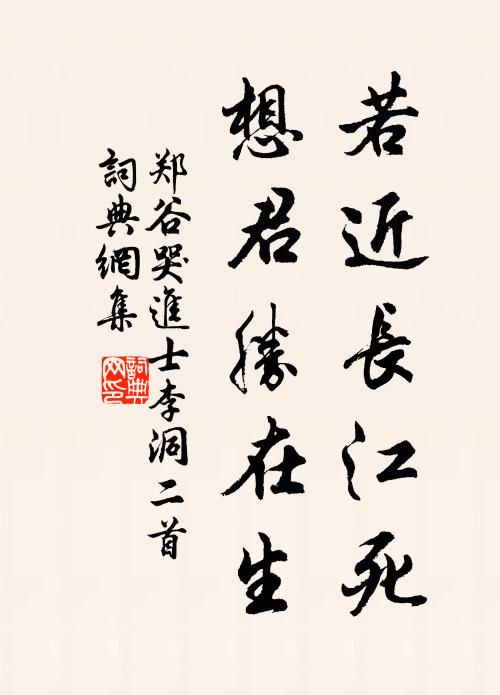 若近長江死
想君勝在生
郑谷哭進士李洞二首
詞典網集
詞典网印